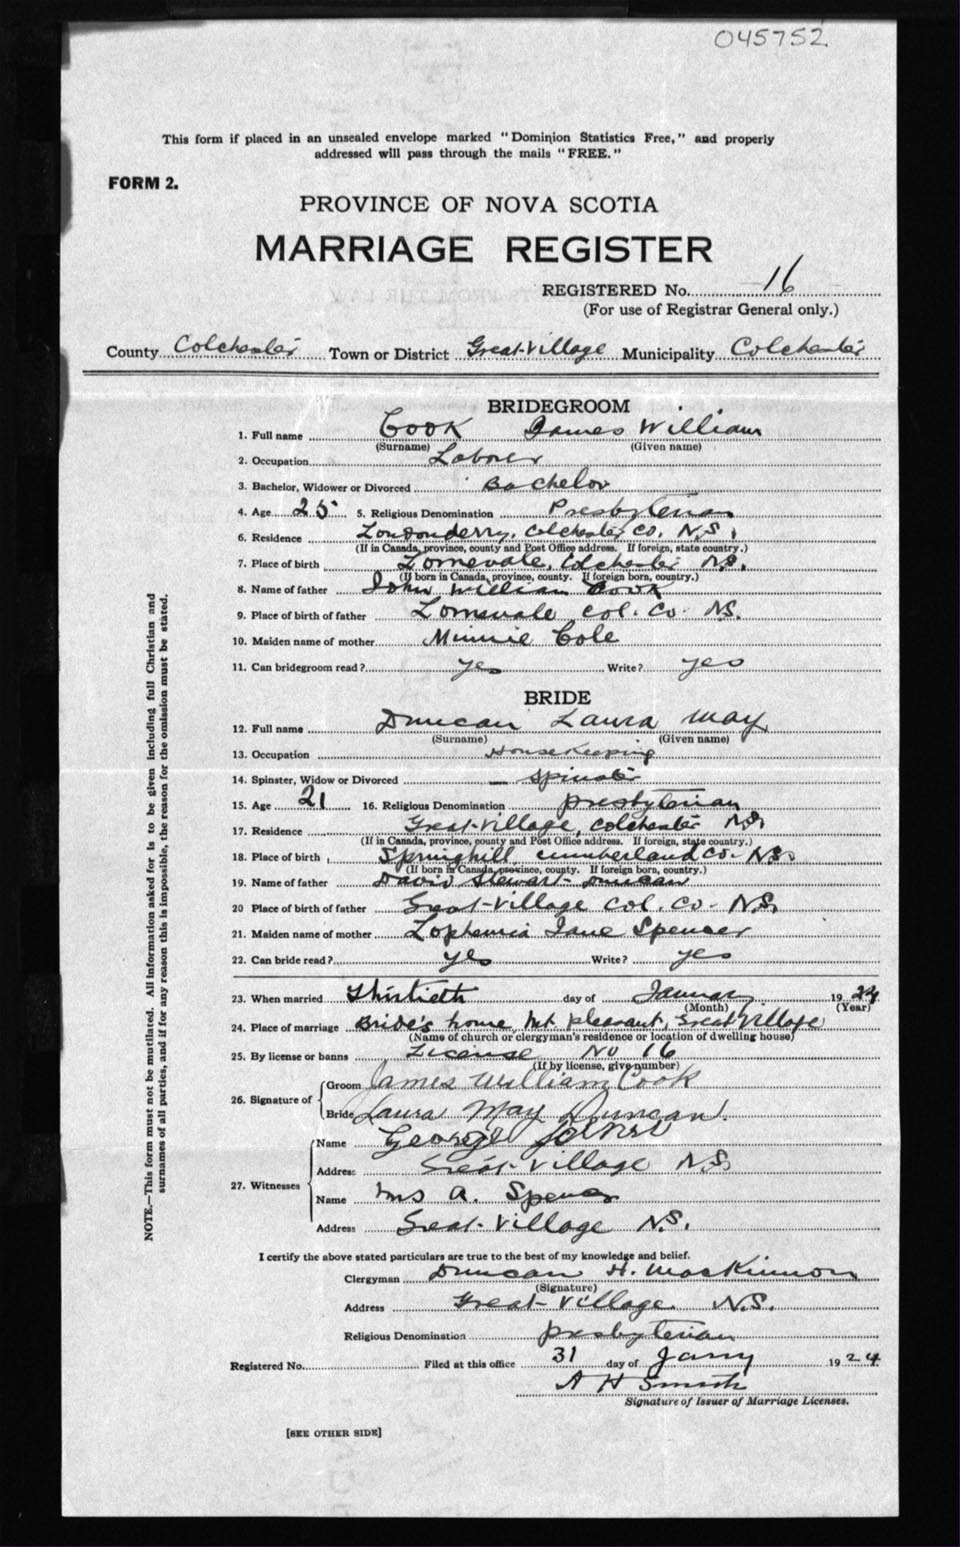 045752
This form if placed in an unsealed envelope marked "Dominion Statistics Free," and properly
addressed will pass through the mails "FREE."
FORM 2.
PROVINCE OF NOVA SCOTIA
MARRIAGE REGISTER
REGISTERED No. 16
(For use of Registrar General only.)
County Colchester Town or District Great Village Municipality Colchester
BRIDEGROOM
1. Full name Cook James William
(Surname) (Given name)
2. Occupation Laborer
3. Bachelor, Widower or Divorced Bachelor
4. Age 25 5. Religious Denomination Presbyterian
6. Residence Londonderry, Colchester Co. N.S.
(If in Canada, province, county and Post Office address. If foreign, state country.)
7. Place of birth Lornevale, Colchester N.S.
(If born in Canada, province, county. If foreign born, country.)
8. Name of father John William Cook
9. Place of birth of father Lornevale Col. Co. N.S.
10. Maiden name of mother Minnie Cole
11. Can bridegroom read? yes Write? yes
BRIDE
12. Full name Duncan Laura May
(Surname) (Given name)
13. Occupation Housekeeping
14. Spinster, Widow or Divorced Spinster
15. Age 21 16. Religious Denomination Presbyterian
17. Residence Great Village, Colchester N.S.
(If in Canada, province, county and Post Office address. If foreign, state country.)
18. Place of birth Springhill Cumberland Co. N.S.
(If born in Canada, province, county. If foreign born, country.)
19. Name of father David Stewart Duncan
20 Place of birth of father Great Village Col. Co. N.S.
21. Maiden name of mother Jane Spencer
22. Can bride read? yes Write? yes
23. When married Thirtieth day of January 1924
(Month) (Year)
24. Place of marriage Bride's home, Mt Pleasant, Great Village
(Name of church or clergyman's residence or location of dwelling house)
25. By license or banns License No 16
(If by license, give number)
26. Signature of Groom James William Cook
Bride Laura May Duncan
27. Witnesses Name George
Address Great Village N.S.
Name Mrs A. Spencer
Address Great Village N.S.
I certify the above stated particulars are true to the best of my knowledge and belief.
Clergyman Duncan H. MacKinnon
(Signature)
Address Great Village N.S.
Religious Denomination Presbyterian
Registered No. Filed at this office 31 day of Jany 1924
A H Smith
Signature of Issuer of Marriage Licenses.
[SEE OTHER SIDE]
NOTE.—This form must not be mutilated. All information asked for is to be given including full Christian and
surnames of all parties, and if for any reason this is impossible, the reason for the omission must be stated.